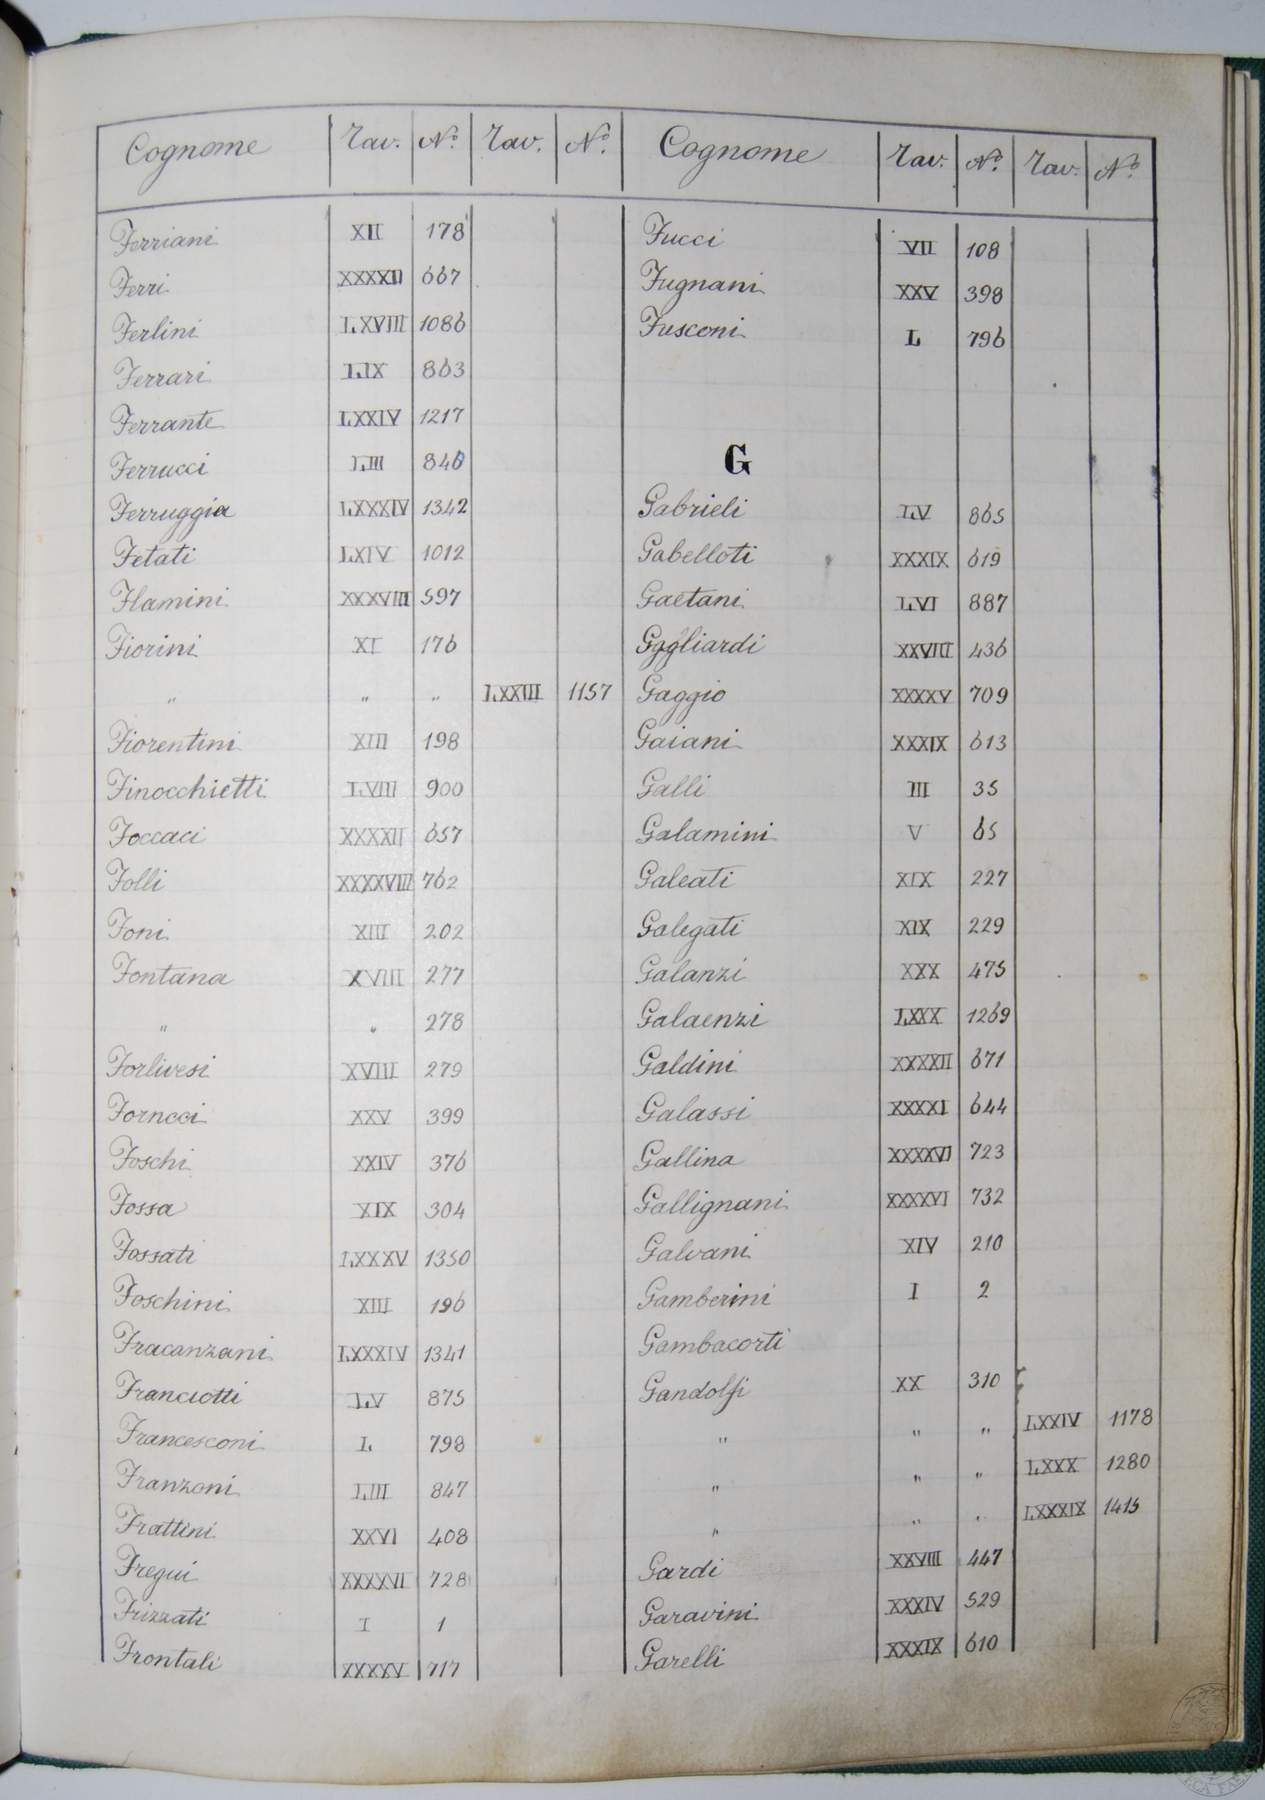 Cognome Tav. N.º Tav. N.º
Ferriani XII 178
Ferri XXXXII 667
Ferlini LXVIII 1086
Ferrari LIX 863
Ferrante LXXIV 1217
Ferrucci LIII 846
Ferruggia LXXXIV 1342
Fetati LXIV 1012
Flamini XXXVIII 597
Fiorini XI 176
" " " LXXIII 1157
Fiorentini XIII 198
Finocchietti LVIII 900
Foccaci XXXXII 657
Folli XXXXVIII 762
Foni XIII 202
Fontana XVIII 277
" " 278
Forlivesi XVIII 279
Forncci XXV 399
Foschi XXIV 376
Fossa XIX 304
Fossati LXXXV 1350
Foschini XIII 196
Fracanzani LXXXIV 1341
Franciotti LV 875
Francesconi L 798
Franzoni LIII 847
Frattini XXVI 408
Fregui XXXXVI 728
Frizzati I 1
Frontali XXXXV 717
Cognome Tav. N.º Tav. N.º
Fucci VII 108
Fugnani XXV 398
Fusconi L 796
G
Gabrieli LV 865
Gabelloti XXXIX 619
Gaetani LVI 887
Gagliardi XXVIII 436
Gaggio XXXXV 709
Gaiani XXXIX 613
Galli III 35
Galamini V 65
Galeati XIX 227
Galegati XIX 229
Galanzi XXX 475
Galaenzi LXXX 1269
Galdini XXXXII 671
Galassi XXXXI 644
Gallina XXXXVI 723
Gallignani XXXXVI 732
Galvani XIV 210
Gamberini I 2
Gambacorti
Gandolfi XX 310
" " " LXXIV 1178
" " " LXXX 1280
" " " LXXXIX 1415
Gardi XXVIII 447
Garavini XXXIV 529
Garelli XXXIX 610